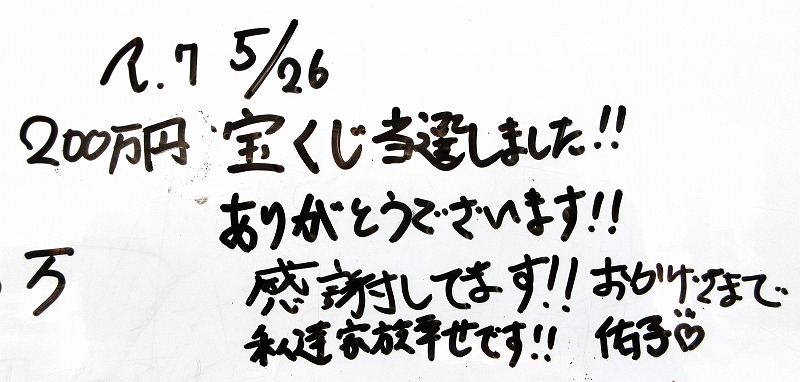 R.7 5/26
200万円 宝くじ当選しました!!
ありがとうございます!!
万
感謝してます!! おかげさまで
私達家族幸せです!! 佑子♡